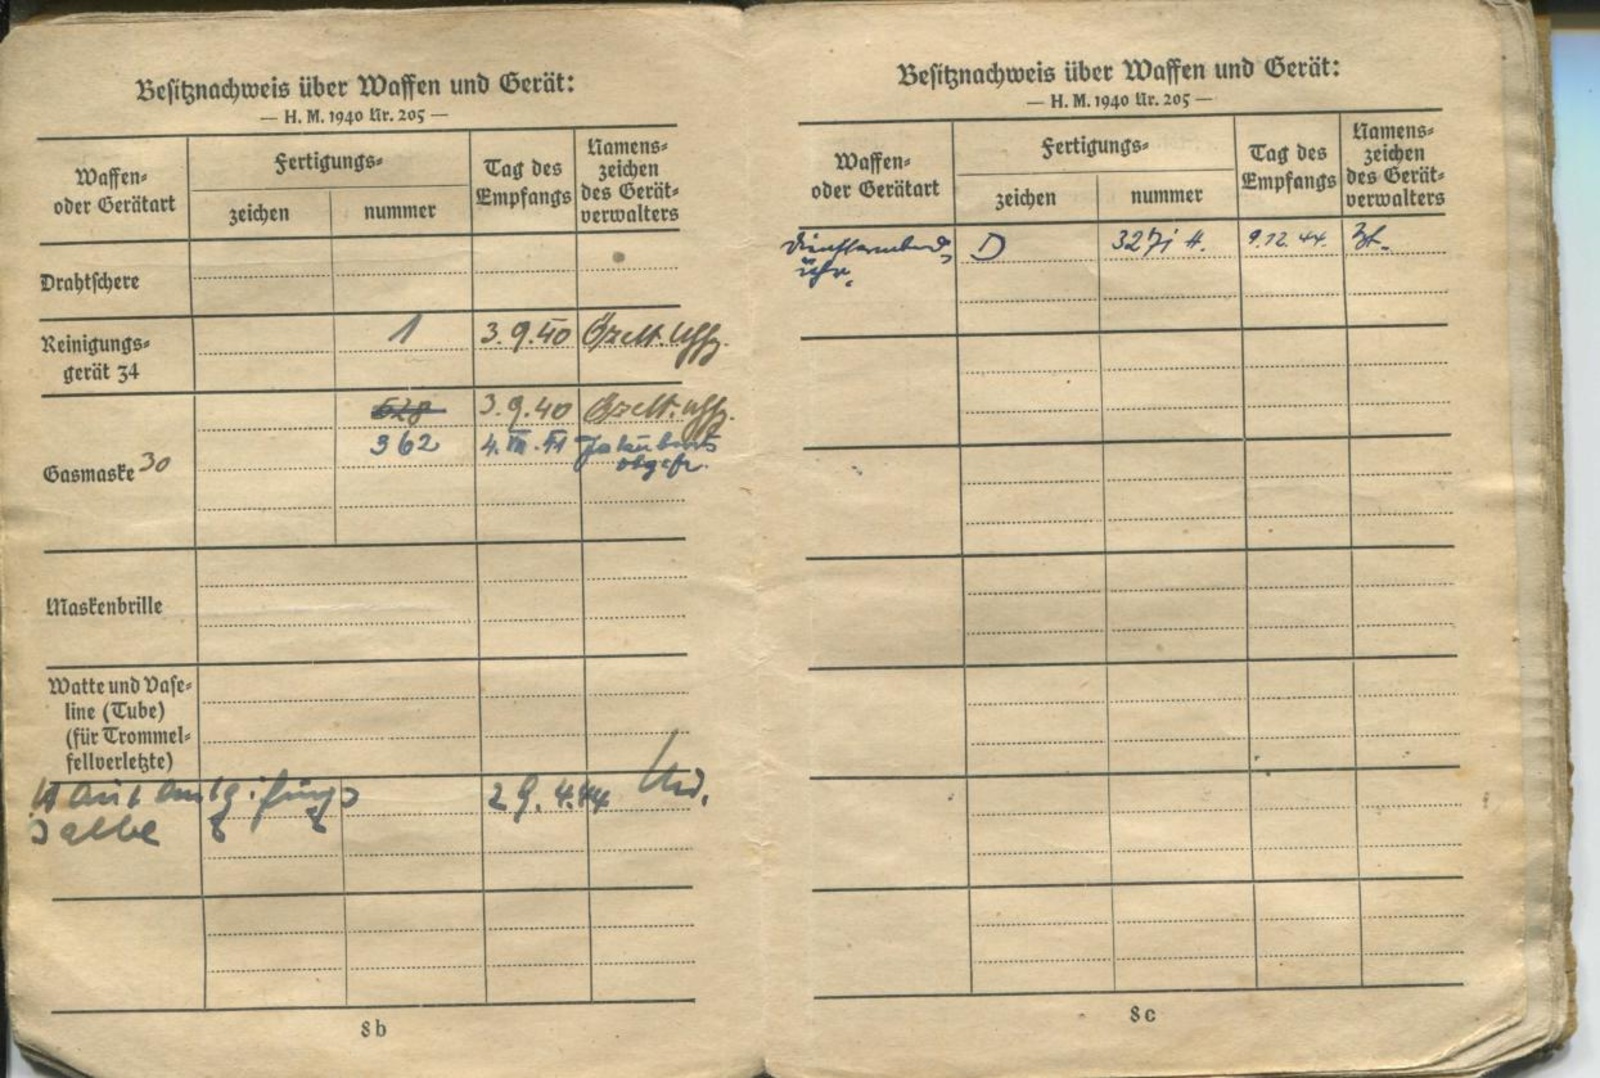 Besitznachweis über Waffen und Gerät:
— H. M. 1940 Nr. 205 —
Waffen-
oder Gerätart
Fertigungs-
zeichen
nummer
Tag des
Empfangs
Namens-
zeichen
des Gerät-
verwalters
Drahtschere
Reinigungs-
gerät 34
1
3.9.40
Uffz.
Gasmaske 30
628
3.9.40
Uffz.
362
4.
obgefr.
Maskenbrille
Watte und Vase-
line (Tube)
(für Trommel-
fellverletzte)
Hautentgiftungs
salbe
29.4.44
8b
Besitznachweis über Waffen und Gerät:
— H. M. 1940 Nr. 205 —
Waffen-
oder Gerätart
Fertigungs-
zeichen
nummer
Tag des
Empfangs
Namens-
zeichen
des Gerät-
verwalters
Dienstarmband
uhr.
D
H.
9.12.44.
8c